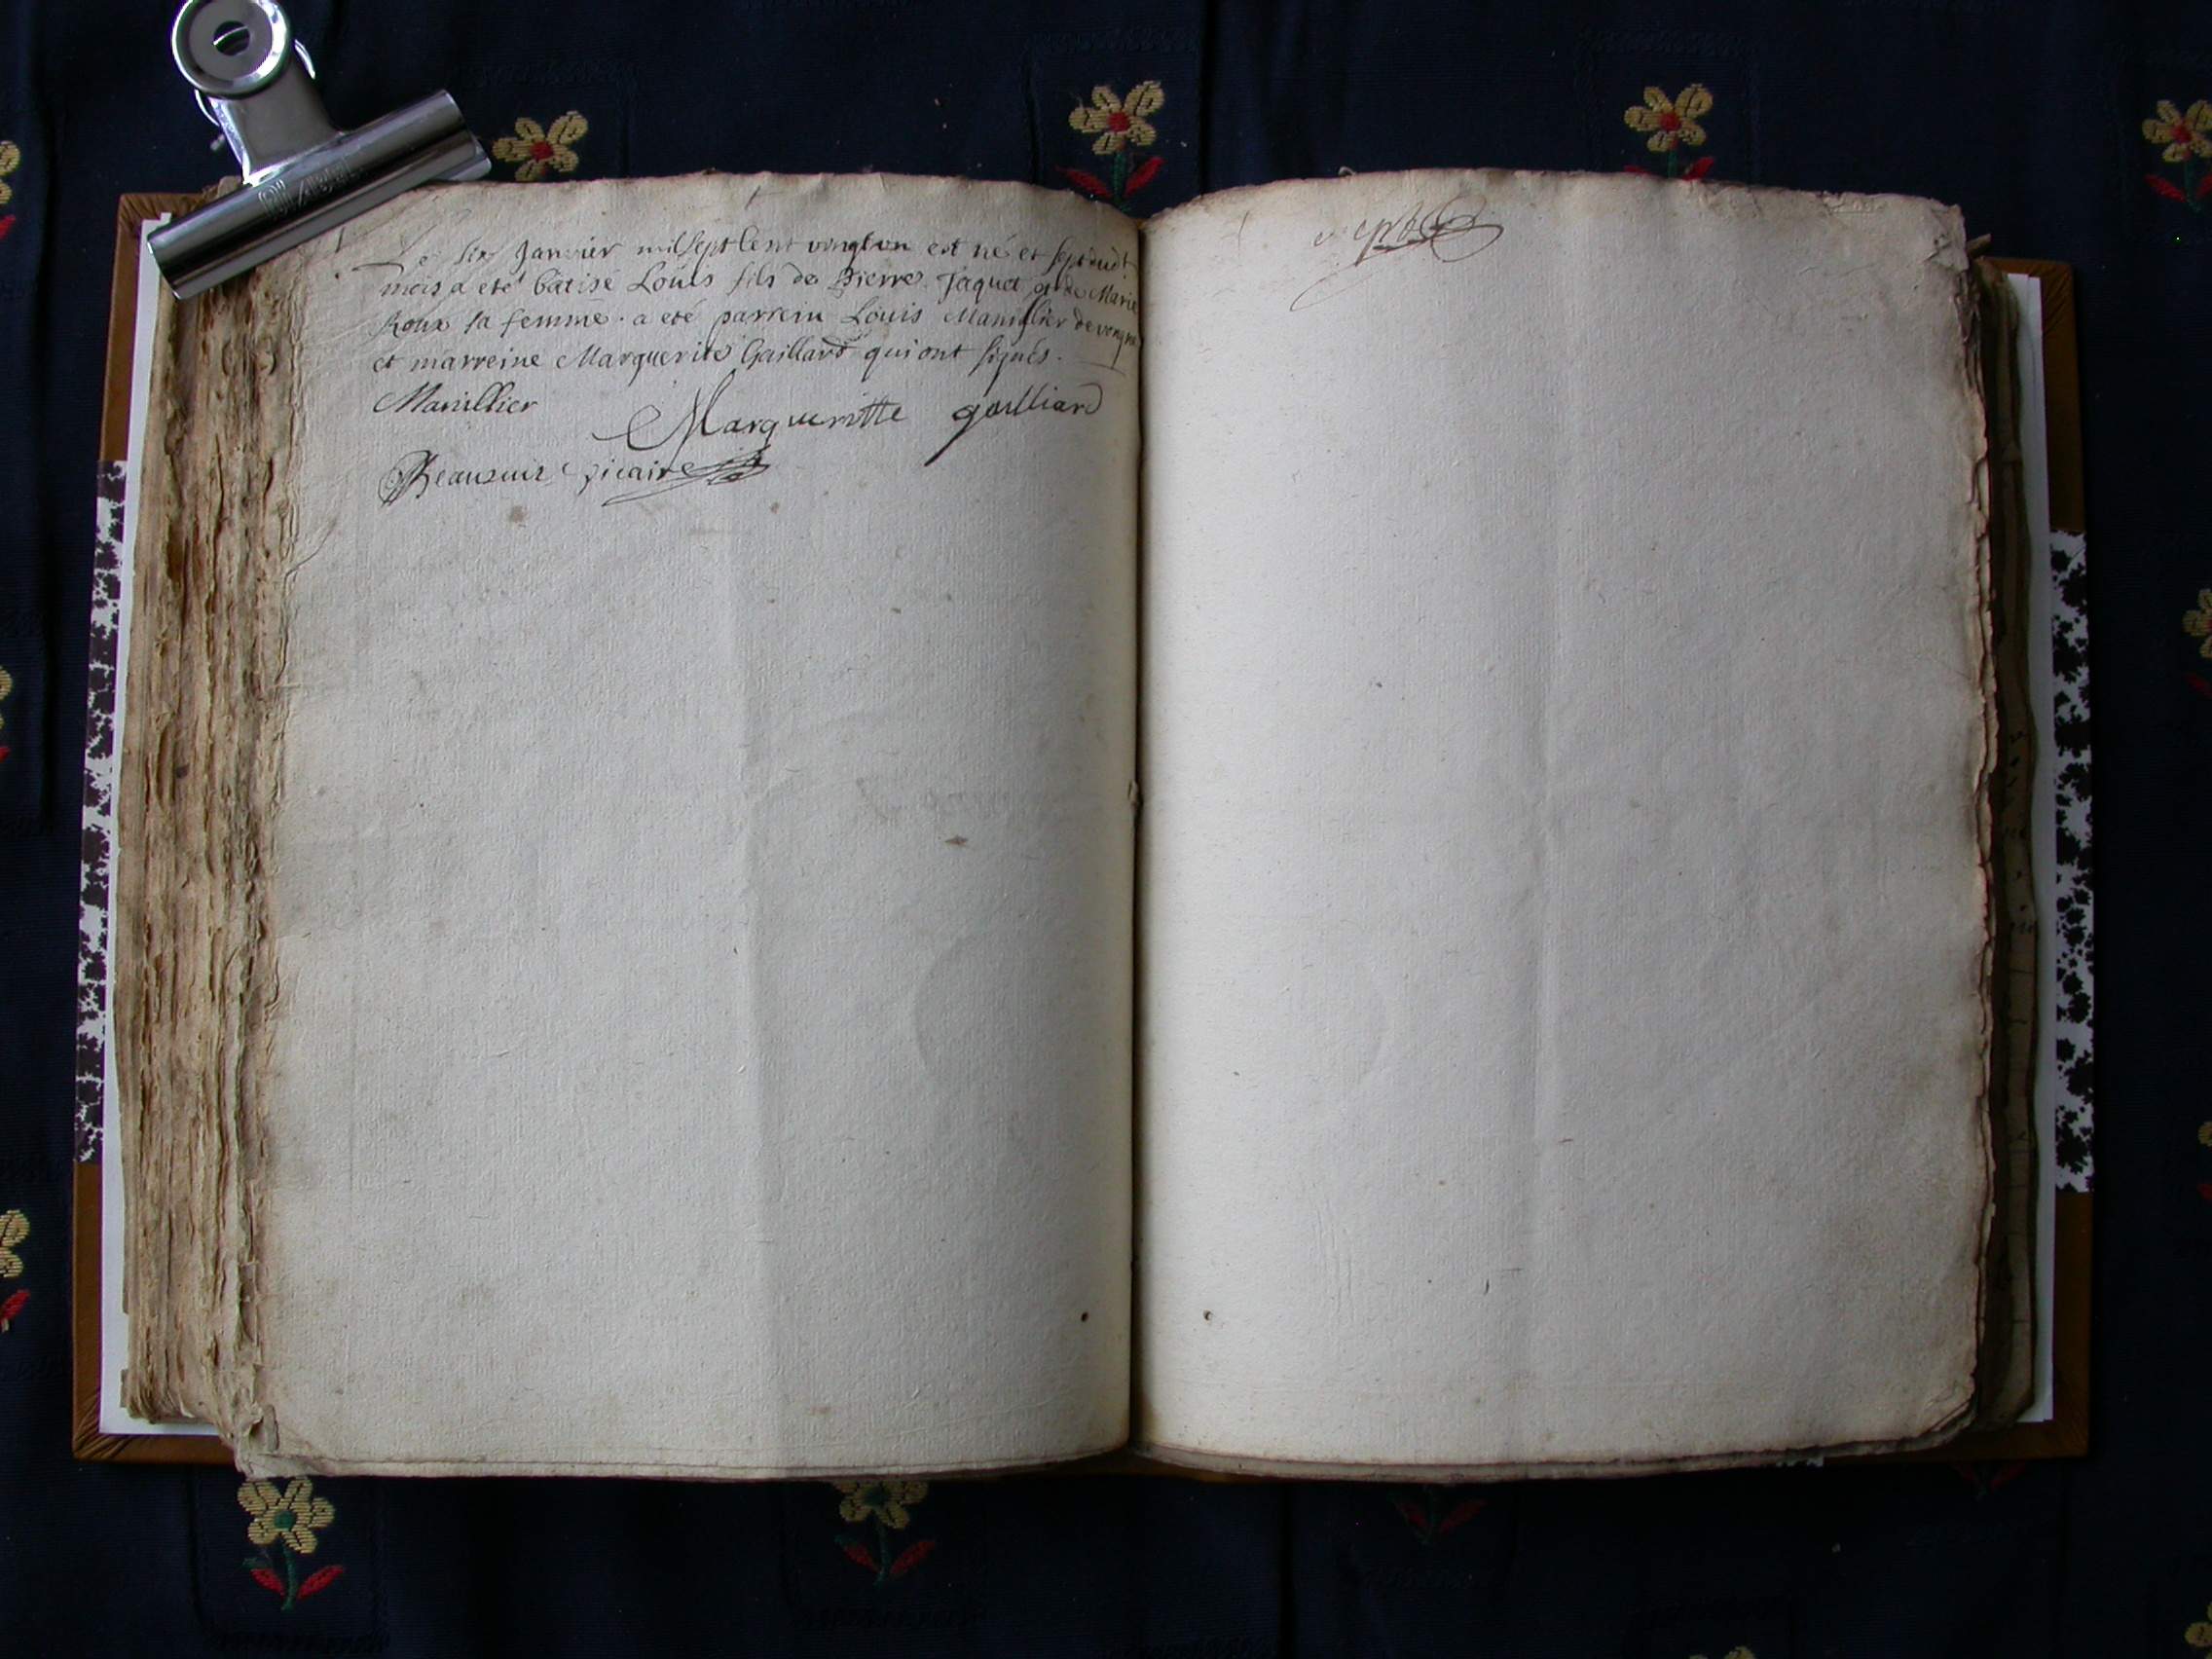 Le six Janvier mil sept cent vingt un est né et sept dudt
mois a eté batisé Loüis fils de Pierre Jaquet et de Marie
Roux sa femme. a eté parrein Loüis Manillier de
et marreine Marguerite Gaillard qui ont signés.
Manillier Margueritte galliard
Beauseur vicaire